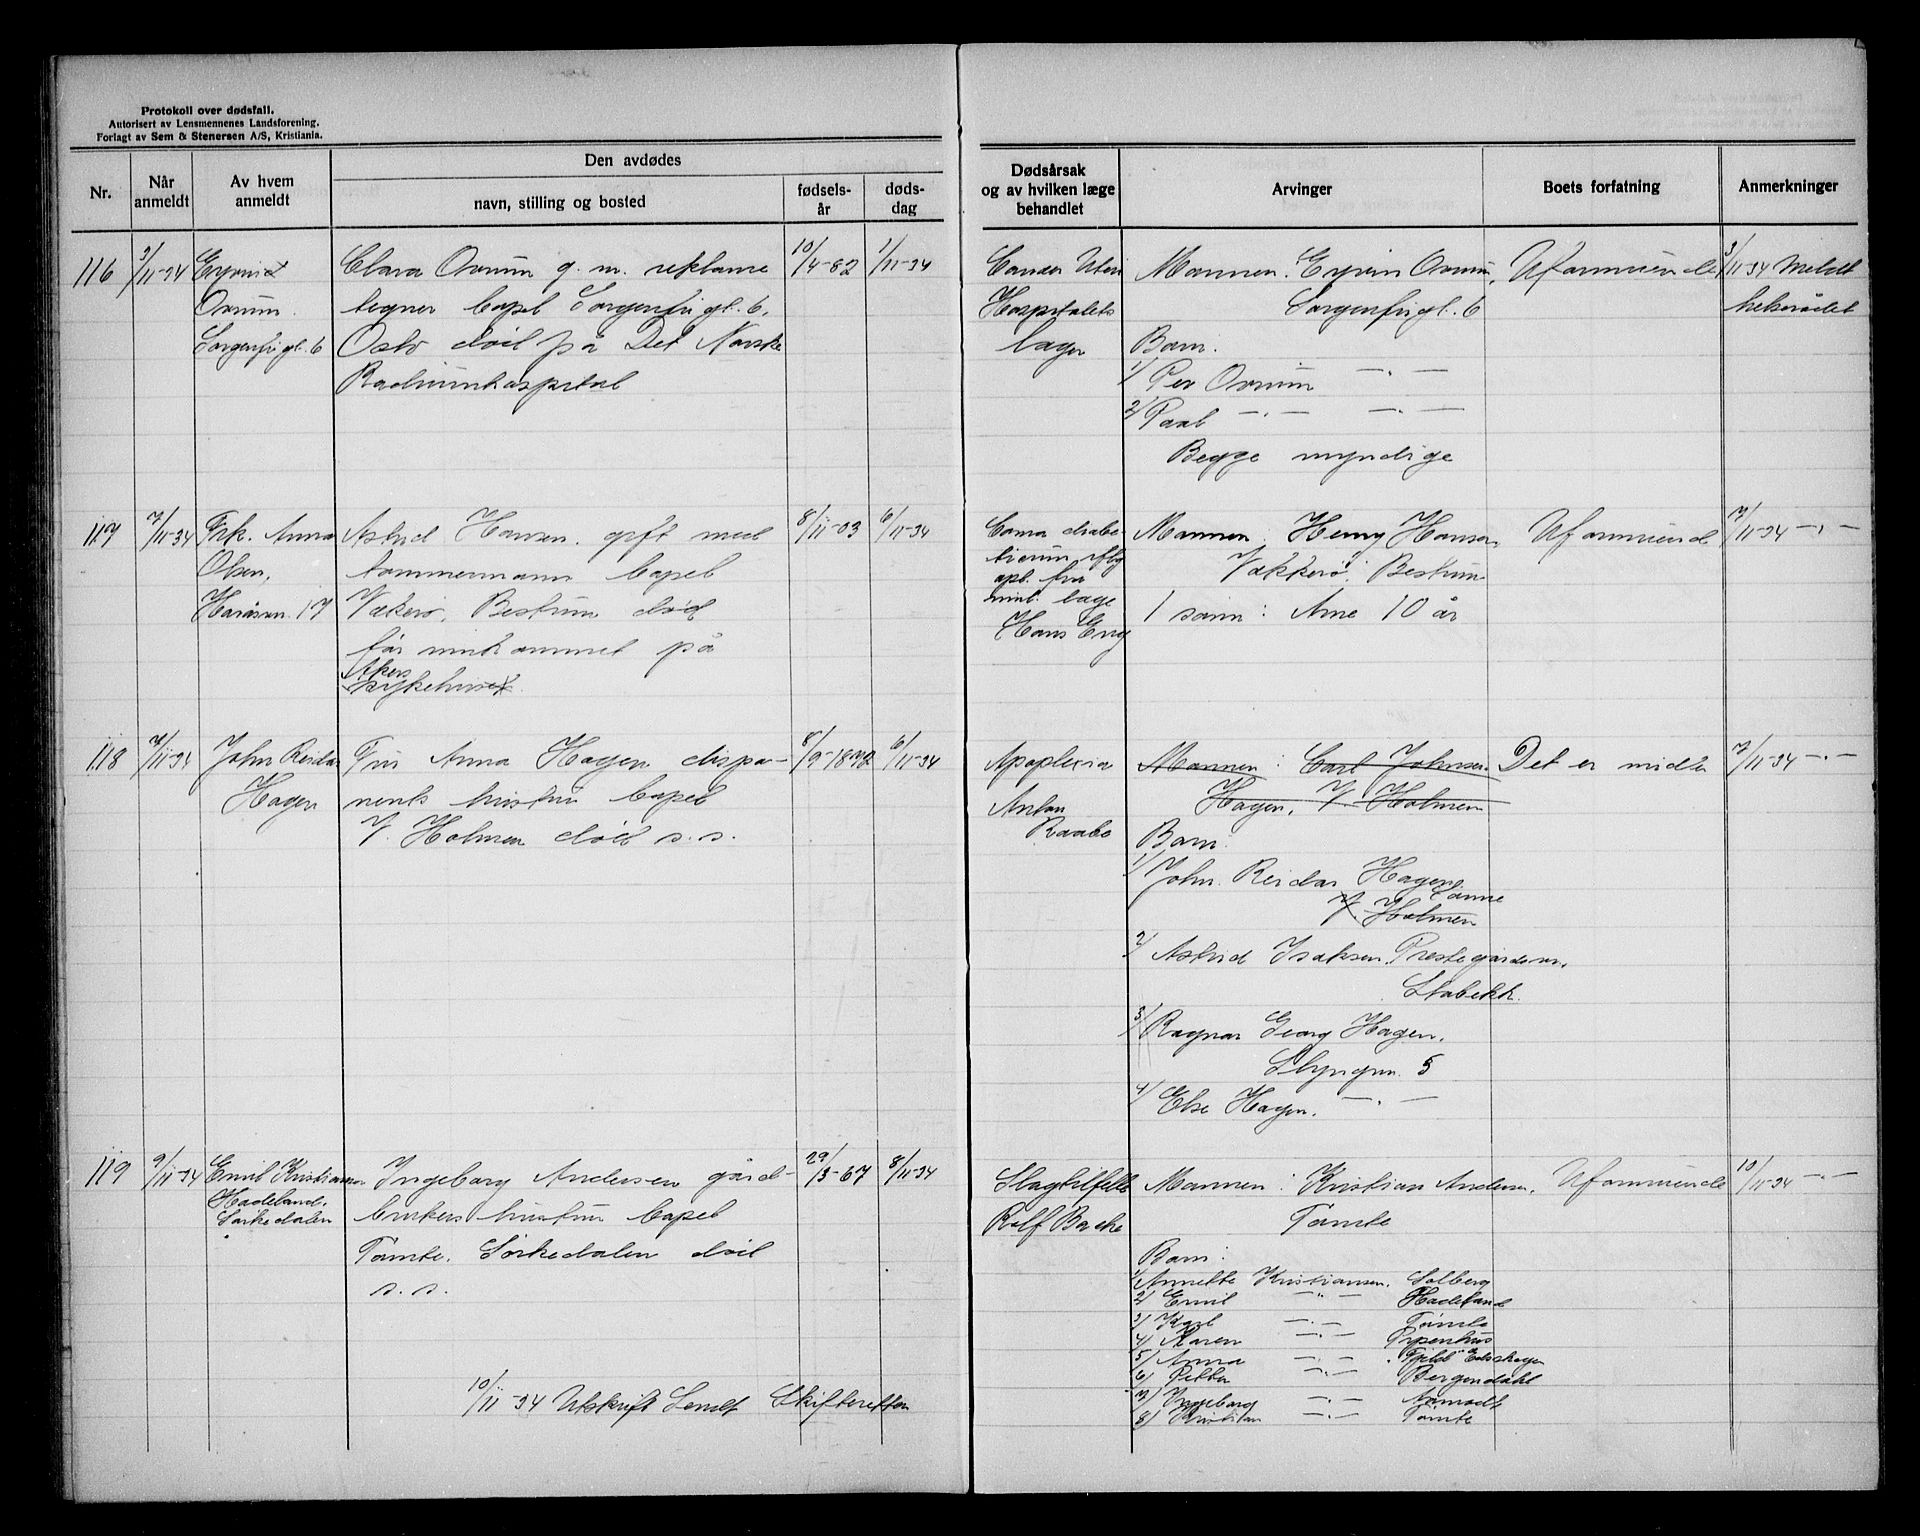 Protokoll over dødsfall.
Autorisert av Lensmennenes Landsforening.
Forlagt av Sem & Stenersen A/S, Kristiania.
Nr.
Når anmeldt
Av hvem anmeldt
Den avdødes
navn, stilling og bosted
fødsels-år
døds-dag
Dødsårsak
og av hvilken læge
behandlet
Arvinger
Boets forfatning
Anmerkninger
116
3/11-34
Ovrum
Sorgenfrigt. 6
Clara Ovrum g. m. reklame
tegner Capt Sorgenfrigt. 6,
Oslo død på Det Norske
Radiumhospital
10/4-82
1/11-34
Cancer Uteri
Hospitalets
læger
Mannen: Ovrum,
Sorgenfrigt. 6
Barn:
1/ Per Ovrum —"—
2/ Paal —"— —"—
Begge myndige
Uformuende
3/11 34 Meldt
helserådet
117
7/11-34
Frk. Anna
Olsen,
17
Astrid Hansen, gift med
tømmermann
Vækerø, Bestum død
før innkommet på
Akers
sykehus
8/11-03
6/11-34
Coma diabe-
ticum iflg
opl. fra
læge
Hans Eng
Mannen: Henry Hansen,
Vækkerø, Bestum
1 sønn: Arne 10 år
Uformuende
7/11-34 —"—
118
7/11-34
John Reidar
Hagen
Fru Anna Hagen dispo-
nents hustru
V. Holmen død s.s.
8/9-1872
6/11-34
Apoplexia
Anton
Raabe
Mannen: Carl Johnsen
Hagen, V. Holmen
Barn:
1/ John Reidar Hagen
Samme
V. Holmen
2/ Astrid Isaksen, Prestegårdsvn.
Stabekk.
3/ Ragnar Georg Hagen,
Slyngvn. 5
4/ Else Hagen. —"—
Det er midler
7/11-34 —"—
119
9/11-34
Emil Kristiansen
Hadeland,
Sørkedalen
Ingeborg Andersen gård-
brukers hustru
Tømte, Sørkedalen død
s.s.
29/3-67
8/11-34
Slagtilfelle
Rolf Backe
Mannen: Kristian Andersen,
Tømte
Barn:
1/ Annette Kristiansen, Solberg
2/ Emil —"— Hadeland
3/ Karl —"— Tømte
4/ Maren —"—
5/ Anna —"—
6/ Petter —"— Bergendahl
7/ Ingeborg —"—
8/ Kristian —"— Tømte
Uformuende
10/11-34 —"—
10/11-34 Utskrift Sendt Skifteretten